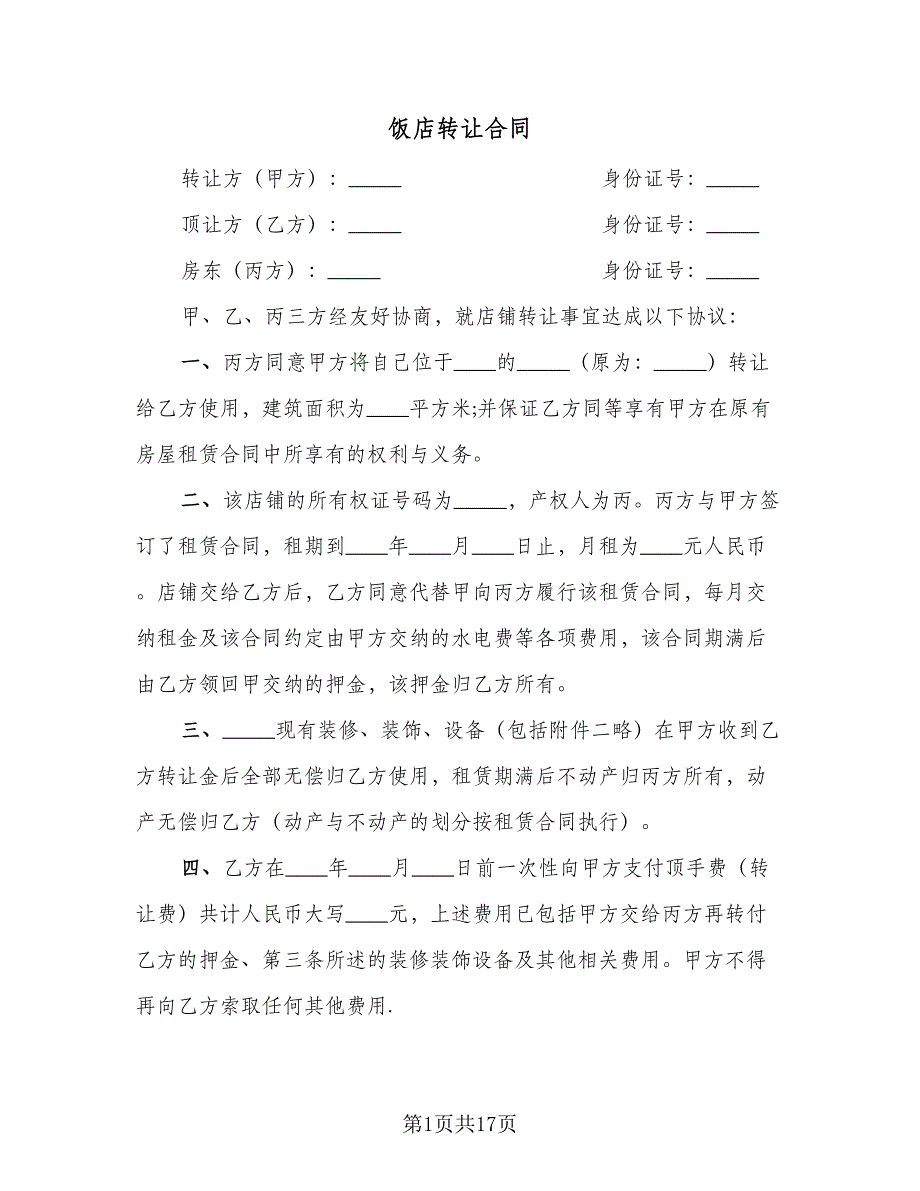 饭店转让合同
转让方（甲方）：_____ 身份证号：_____
顶让方（乙方）：_____ 身份证号：_____
房东（丙方）：_____ 身份证号：_____
甲、乙、丙三方经友好协商，就店铺转让事宜达成以下协议：
一、丙方同意甲方将自己位于____的_____（原为：_____）转让
给乙方使用，建筑面积为____平方米;并保证乙方同等享有甲方在原有
房屋租赁合同中所享有的权利与义务。
二、该店铺的所有权证号码为_____，产权人为丙。丙方与甲方签
订了租赁合同，租期到____年____月____日止，月租为____元人民币
。店铺交给乙方后，乙方同意代替甲向丙方履行该租赁合同，每月交
纳租金及该合同约定由甲方交纳的水电费等各项费用，该合同期满后
由乙方领回甲交纳的押金，该押金归乙方所有。
三、_____现有装修、装饰、设备（包括附件二略）在甲方收到乙
方转让金后全部无偿归乙方使用，租赁期满后不动产归丙方所有，动
产无偿归乙方（动产与不动产的划分按租赁合同执行）。
四、乙方在____年____月____日前一次性向甲方支付顶手费（转
让费）共计人民币大写____元，上述费用已包括甲方交给丙方再转付
乙方的押金、第三条所述的装修装饰设备及其他相关费用。甲方不得
再向乙方索取任何其他费用.
第1页共17页